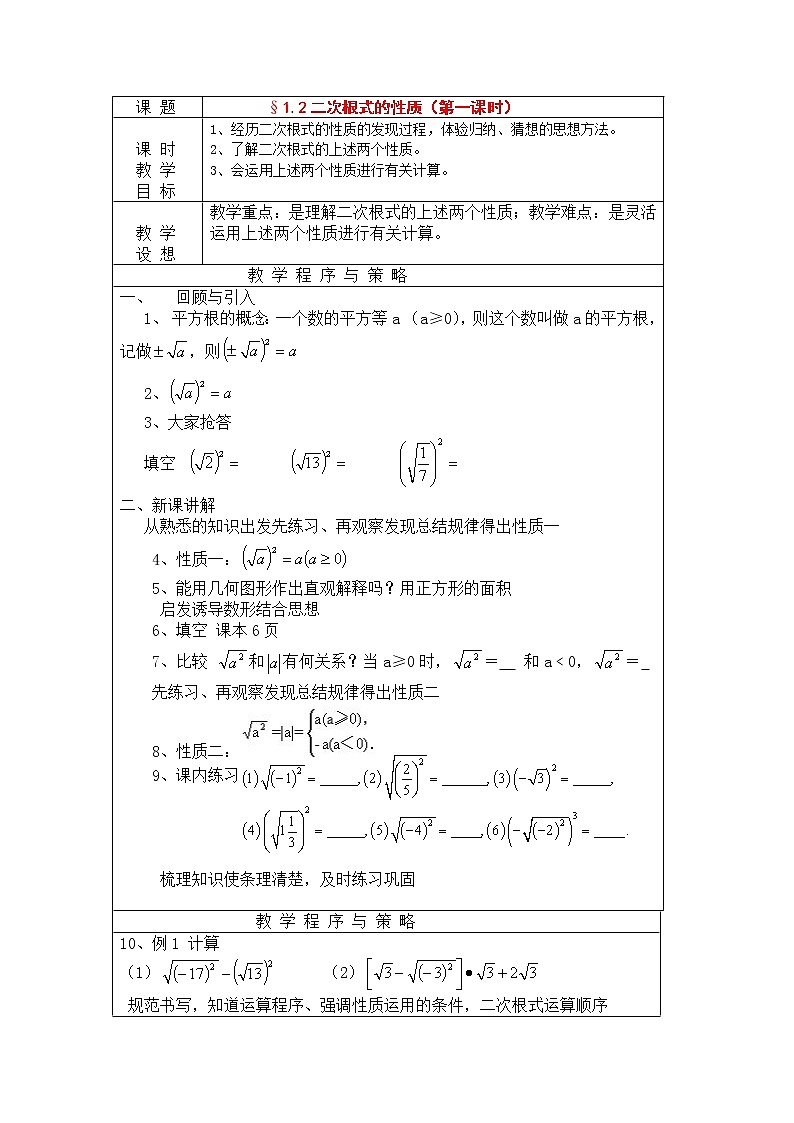 课 题 §1.2二次根式的性质（第一课时）
课 时 教 学 目 标
1、经历二次根式的性质的发现过程，体验归纳、猜想的思想方法。
2、了解二次根式的上述两个性质。
3、会运用上述两个性质进行有关计算。
教 学 设 想
教学重点：是理解二次根式的上述两个性质；教学难点：是灵活
运用上述两个性质进行有关计算。
教 学 程 序 与 策 略
一、 回顾与引入
1、 平方根的概念：一个数的平方等 a （a≥0），则这个数叫做 a 的平方根，
记做±√a，则(±√a)²=a
2、(√a)²=a
3、大家抢答
填空 (√2)²= (√13)²= (√(1/7))²=
二、新课讲解
从熟悉的知识出发先练习、再观察发现总结规律得出性质一
4、性质一：(√a)²=a(a≥0)
5、能用几何图形作出直观解释吗？用正方形的面积
启发诱导数形结合思想
6、填空 课本 6 页
7、比较 √a² 和|a|有何关系？当 a≥0 时，√a²=__ 和 a﹤0，√a²=_
先练习、再观察发现总结规律得出性质二
8、性质二：√a²=|a|={a(a≥0), -a(a＜0).
9、课内练习(1)√(-1)²=_____,(2)√(2/5)²=______,(3)(-√3)²=_____,
(4)(√(1 1/3))²=_____,(5)√(-4)²=____,(6)(-√(-2)²)³=____.
梳理知识使条理清楚，及时练习巩固
教 学 程 序 与 策 略
10、例 1 计算
（1）√(-17)²-(√13)² （2）[√3-√(-3)²]•√3+2√3
规范书写，知道运算程序、强调性质运用的条件，二次根式运算顺序